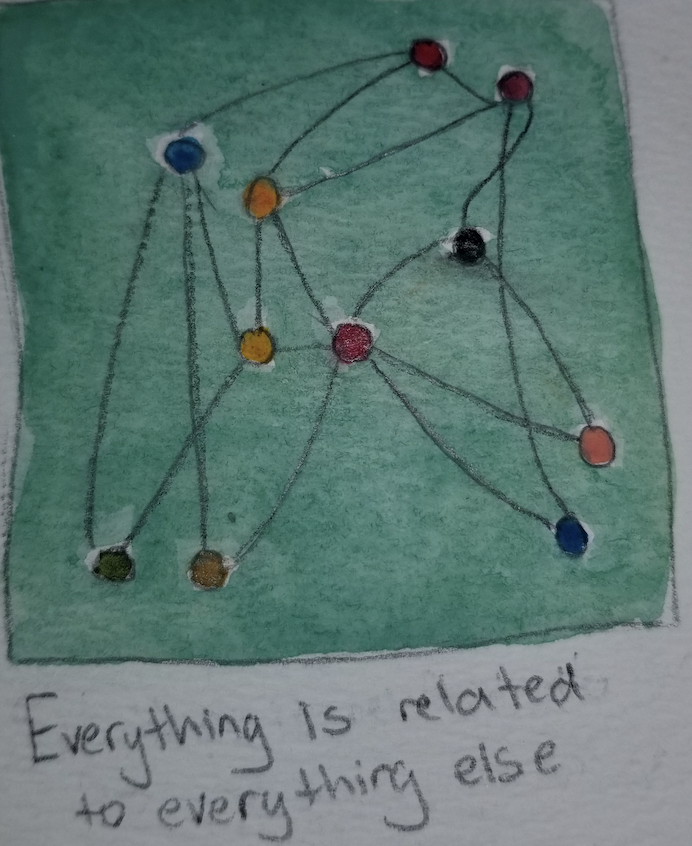 Everything is related
to everything else